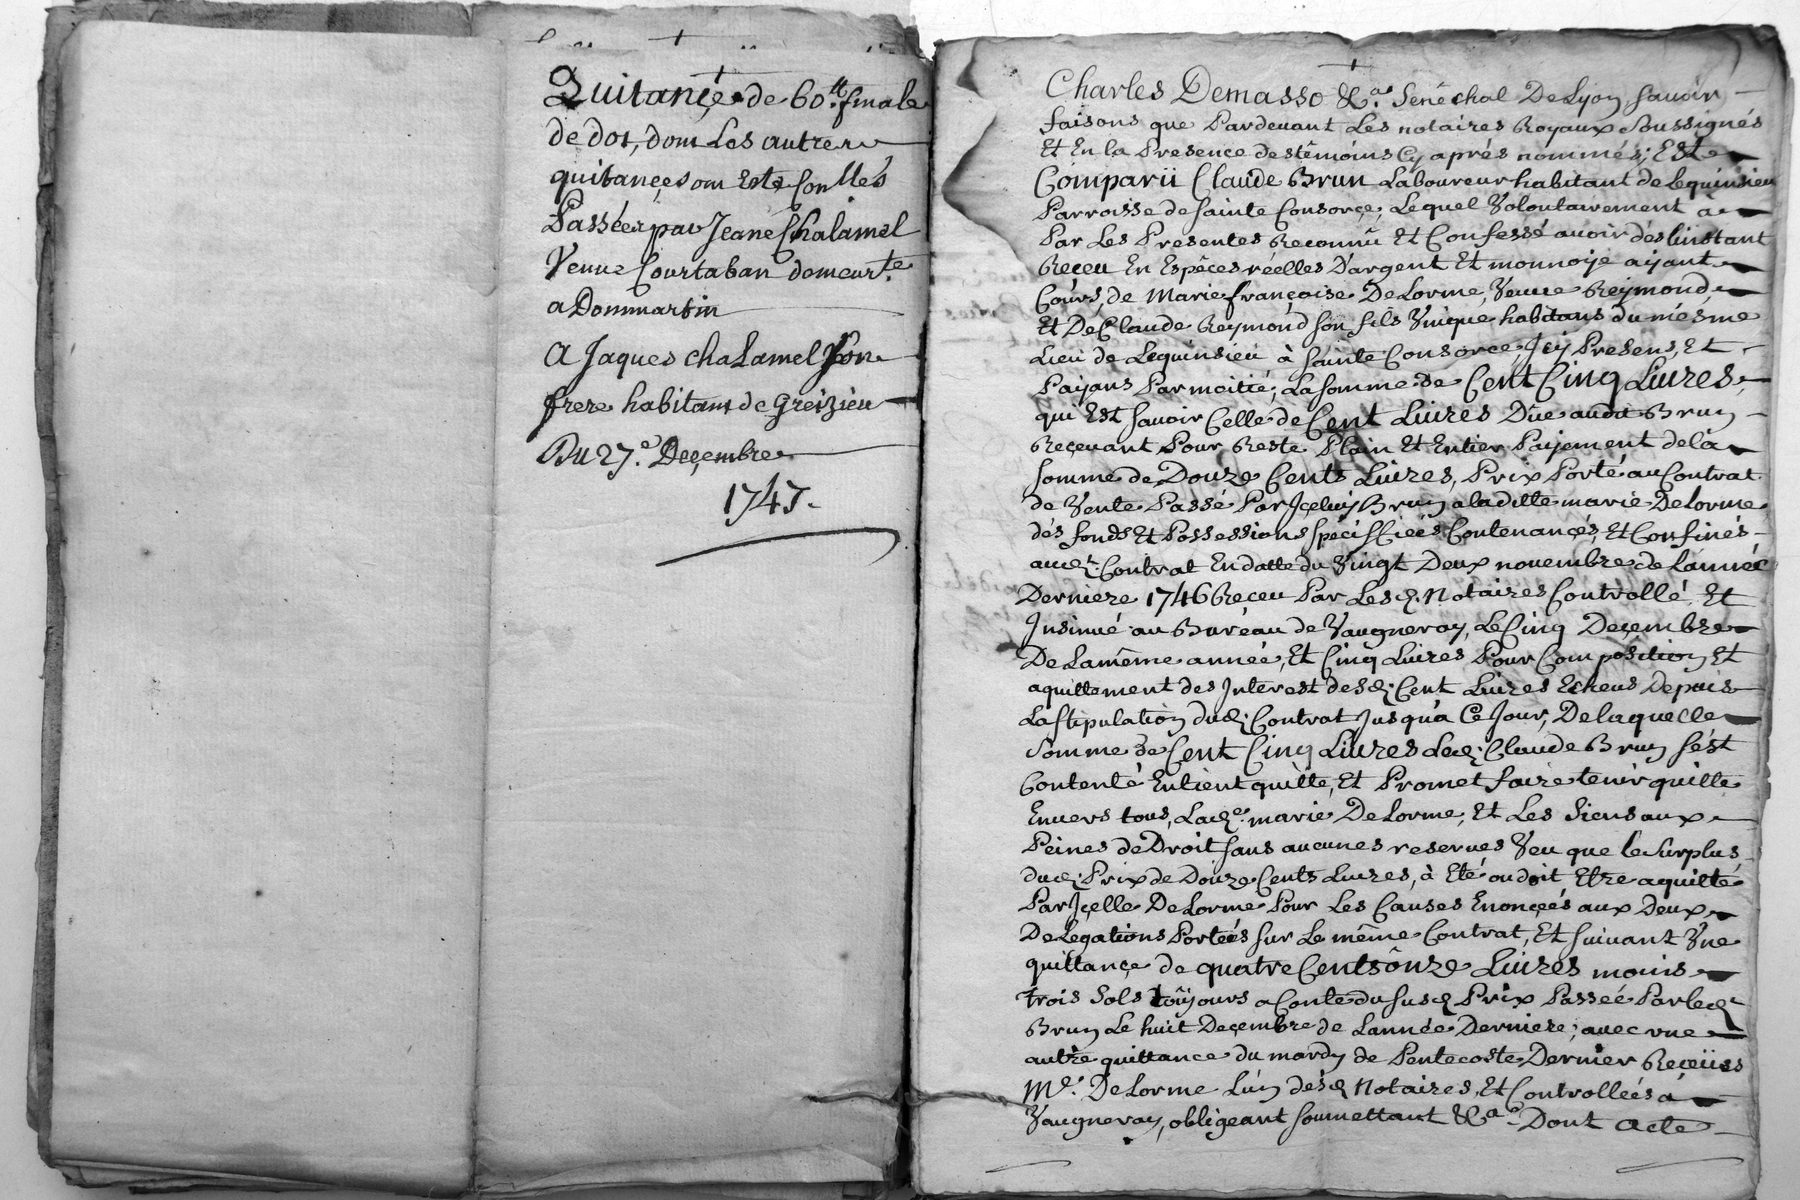 Quitançe de 60.ᵗᵗ finale
de dot, dont Les autres
quitançes ont Esté Con llés
Passées par Jeane Chalamel
Veuve Courtaban demeur.te
a Dommartin
A Jaques chaLamel Son
frere habitant de Greizieu
Du 27.e Deçembre
1747.
Charles Demasso &.a Senéchal De Lyon savoir
faisons que Pardevant Les notaires Royaux Soussignés
Et En la Presence des têmoins Cy aprés nommés; Est
Comparü Claude Brun Laboureur habitant de Lequinsieu
Parroisse de Sainte Consorçe, Lequel Volontairement à
Par Les Presentes Reconnû Et Confessé avoir dés L'instant
Reçeu En Espêces réelles D'argent Et monnoye ayant
Cours, de Marie françoise DeLorme, Veuve Reymond,
Et De Claude Reymond son fils Vnique habitans du mésme
Lieu de Lequinsieu à Sainte Consorce, Jcy Presens, Et
Payans Par moitié, La somme de Cent Cinq Livres,
qui Est savoir Celle de Cent Livres Düe audit Brun
Reçevant Pour Reste Plain Et Entier Payement de la
somme de Douze Cents Livres, Prix Porté au Contrat
de Vente Passé Par Jçeluy Brun a laditte marie DeLorme
dés fonds Et Possessions spéciffiées Contenançés, Et Confinés
aud.t Contrat En datte du Vingt Deux novembre de L'année
Derniere 1746 Reçeu Par Lesd. Notaires Controllé Et
Jnsinué au Buréau de Vaugneray, Le Cinq Deçembre
De La même année, Et Cinq Livres Pour Composition Et
aquittement des Jnterest desd. Cent Livres Echeus Depuis
La stipulation dud. Contrat Jusqu'à Ce Jour, De laquelle
somme de Cent Cinq Livres Led. Claude Brun s'ést
Contenté Entient quitte, Et Promet faire tenir quitte
Envers tous, Lad.e marie DeLorme, Et Les Siens aux
Peines de Droit sans aucunes reserves Veu que le Surplus
dud. Prix de Douze Cents Livres, à Eté ou doit Etre aquitté
Par Jçelle DeLorme Pour Les Causes Enonçéés aux Deux
DeLegations Portéés sur Le même Contrat, Et suivant Vne
quittançe de quatre Cents ônze Livres moins
trois Sols toûjours a Conte du susd Prix Passéé Par led.t
Brun Le huit Deçembre de L'année Derniere; avec vne
autre quittance du mardy de Pentecoste Dernier Reçeües
M.e DeLorme L'un désd Notaires, Et Controlleés à
Vaugneray, obligeant soumettant &.a Dont Acte